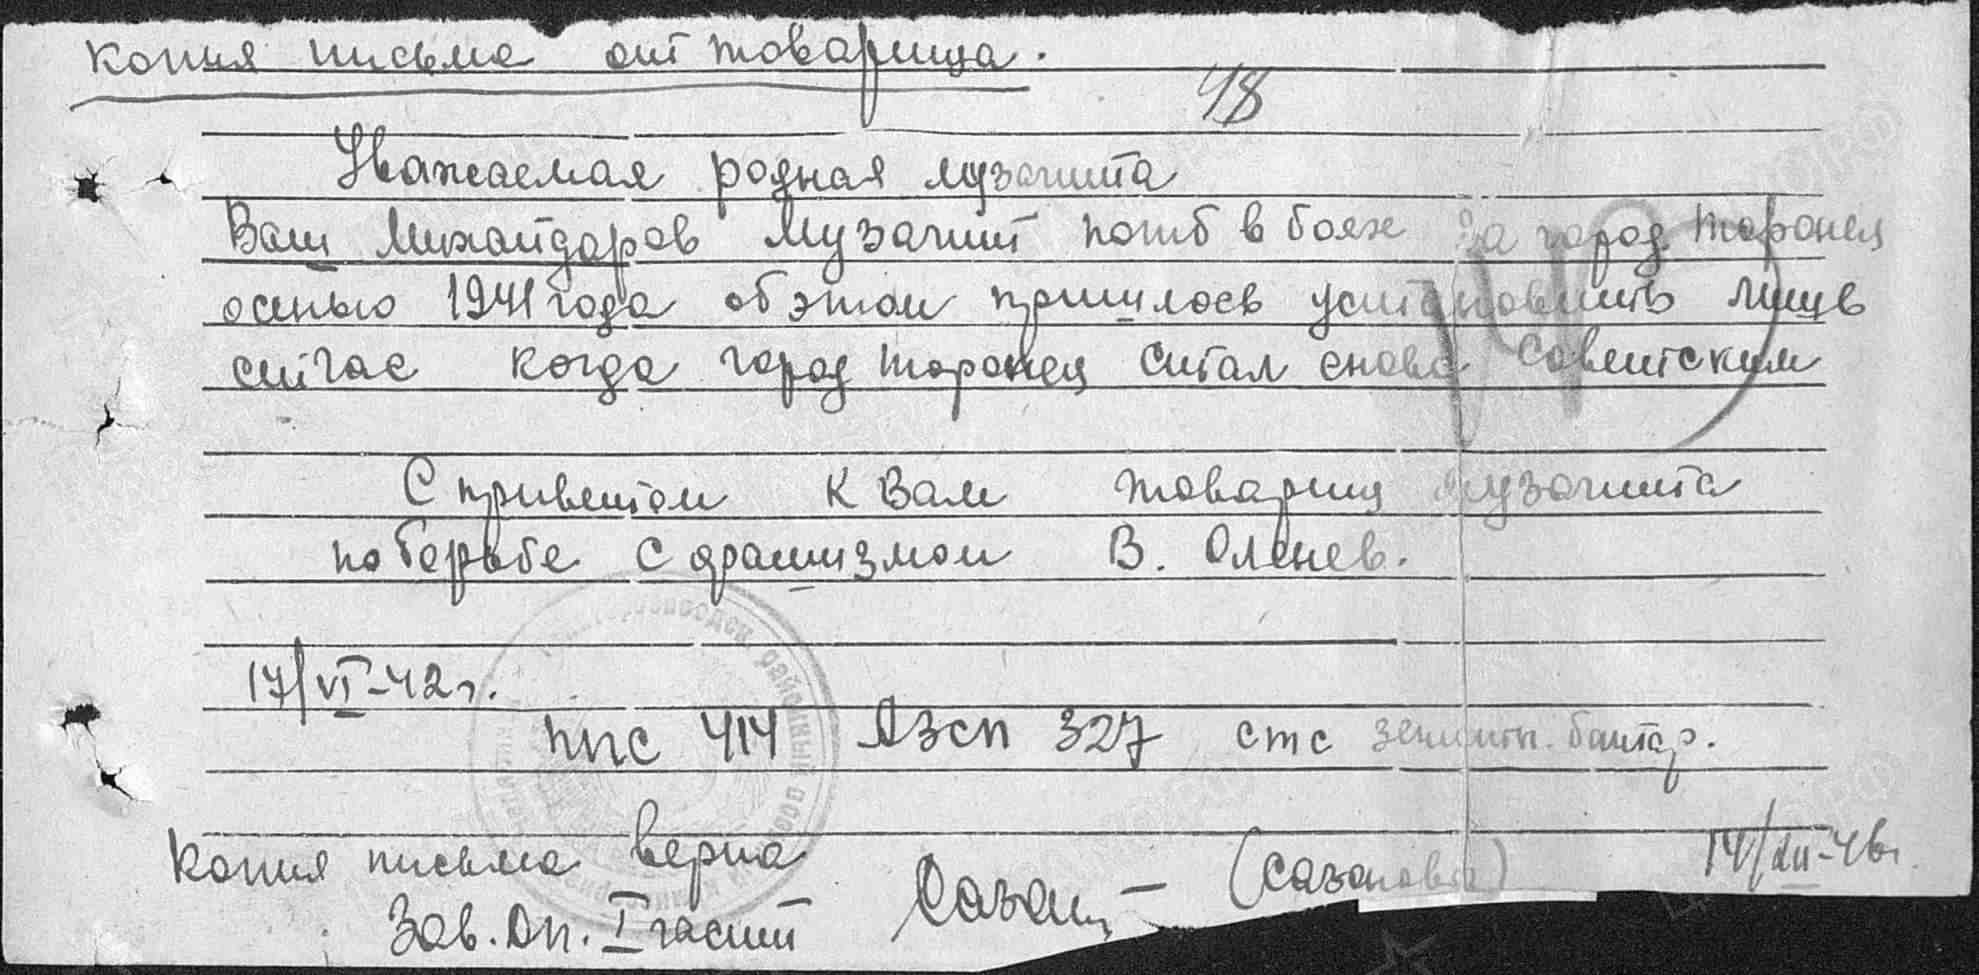 Копия письма от товарища.
48
Уважаемая родная Музагита
Ваш Михайдаров Музагит погиб в боях за город Торопец
осенью 1941 года об этом пришлось установить лишь
сейчас когда город Торопец стал снова Советским
С приветом к Вам товарищ Музагита
по борьбе с фашизмом В. Оленев.
17/VI-42 г.
ппс 414 АЗСП 327 стс зенитн. батар.
районный
Копия письма верна
Зав. Оп. I части (Сазонова) 14/XII-46 г.